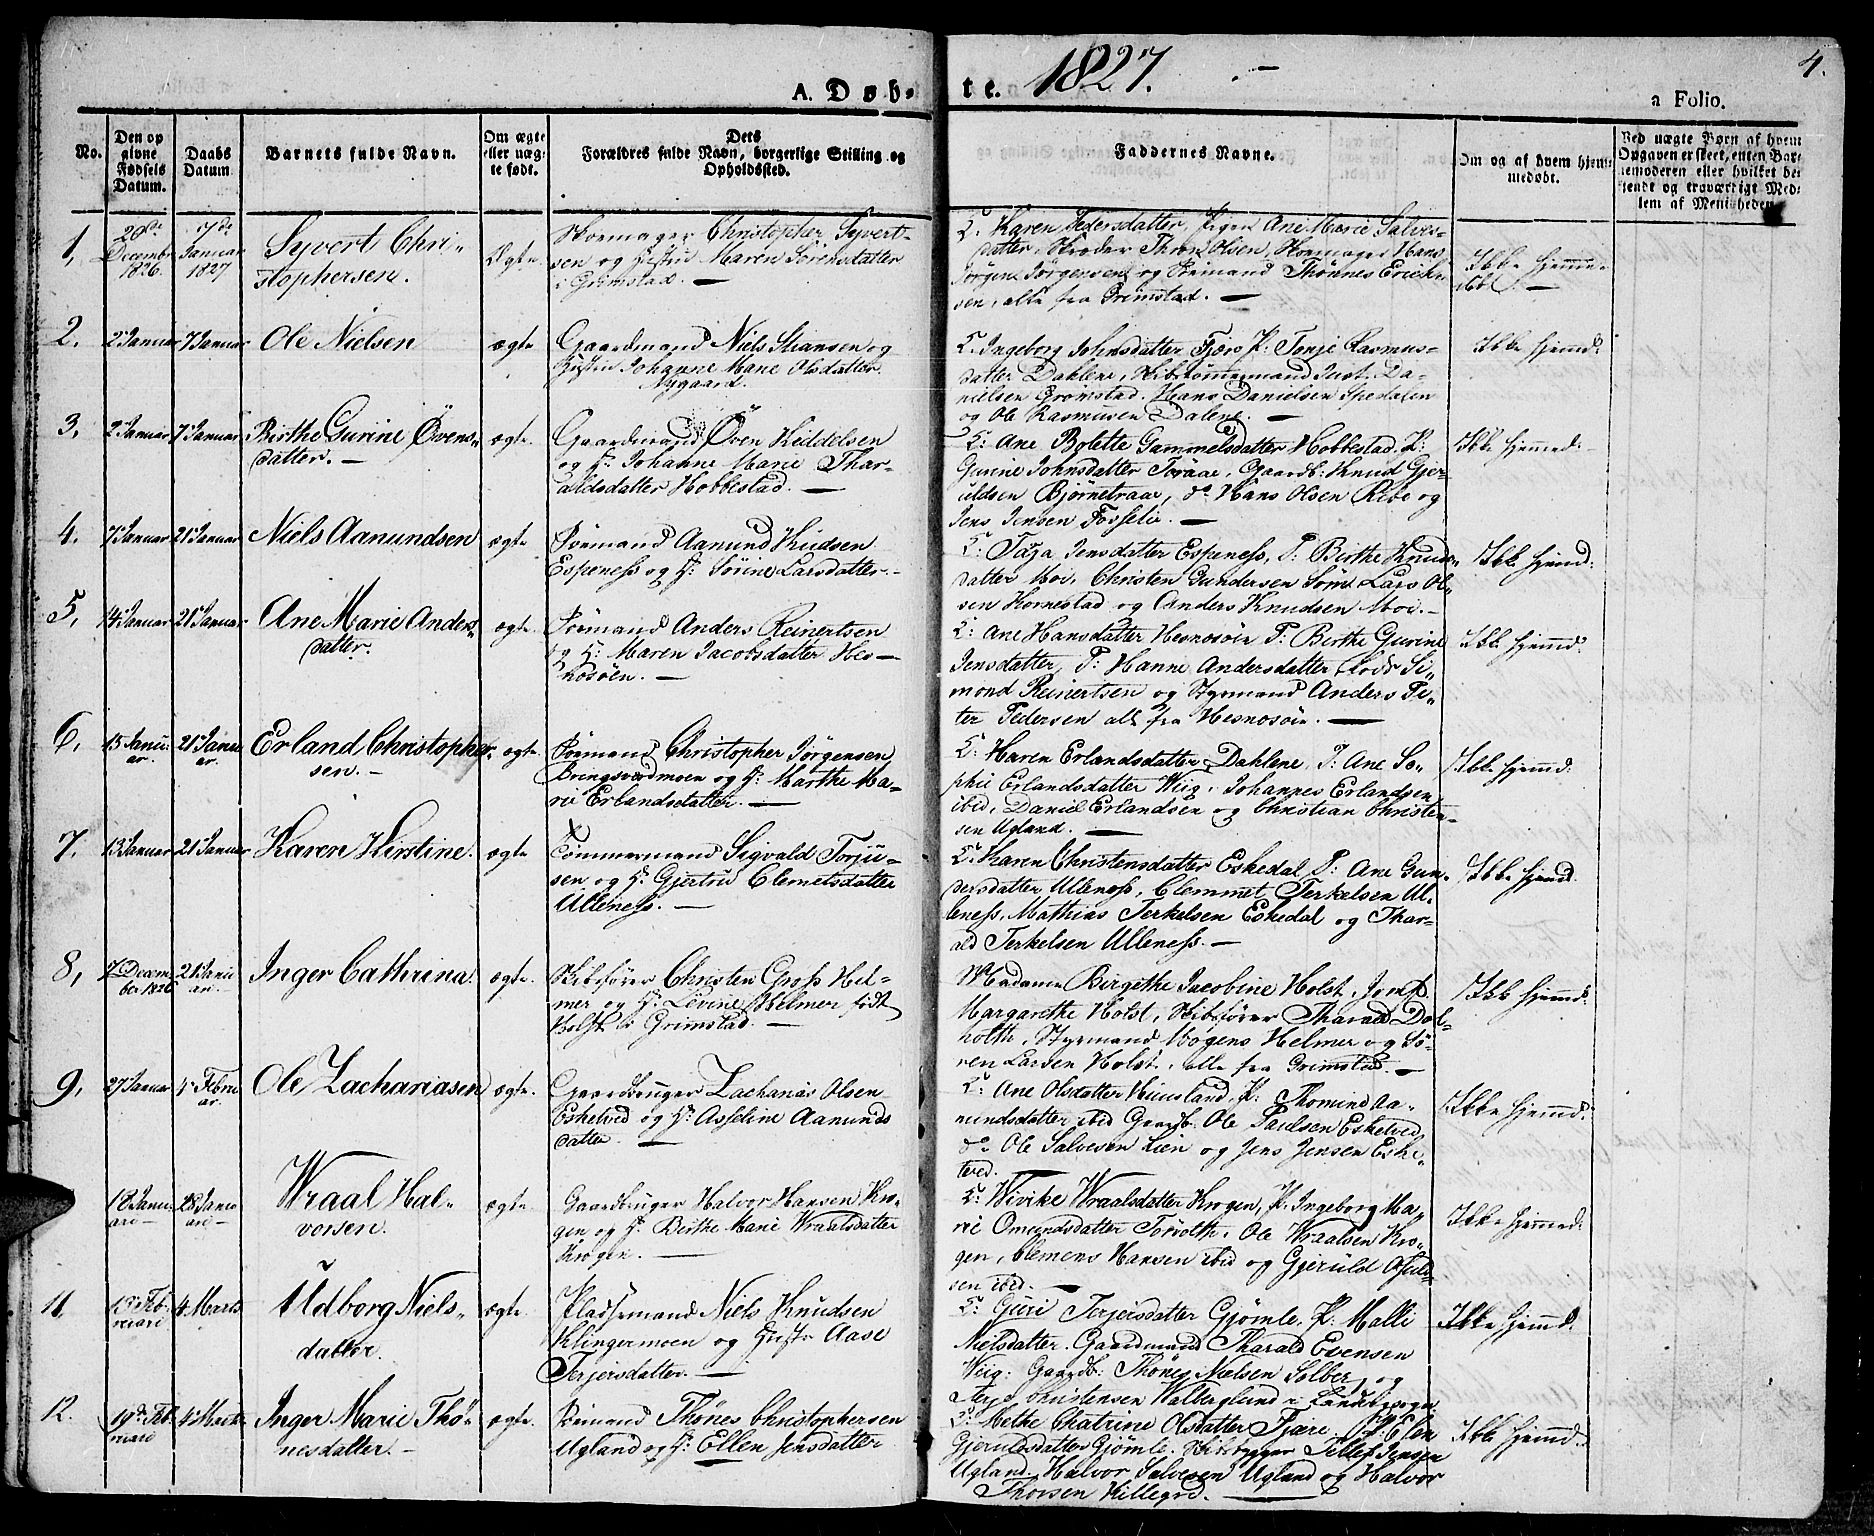 A. Døb-te. 1827. 4.
a Folio.
No.
Den opgivne Fødsels Datum.
Daabs Datum
Barnets fulde Navn.
Om ægte eller uægte født.
Dets Forældres fulde Navn, borgerlige Stilling og Opholdssted.
Faddernes Navne.
Om og af hvem hjemmedøbt.
Ved uægte Børn af hvem Opgaven er skeet, enten Barnemoderen eller hvilket bekjendt og troværdigt Medlem af Menigheden.
1, 20de Decembr 1826. Januar 1827 Syvert Chri-
stophersen. Ægte
Christopher Syvert-
sen og Hustru Maren Sörensdatter
i Grimstad. —
Karen Pedersdatter, Pigen Ane Marie Salves-
datter, Thron Olsen, Hans
Jörgen Jörgensen og Thönnes Erick-
sen, alle fra Grimstad. —
Ikke hjemme-
döbt. —
2. 2 Januar 7 Januar Ole Nielsen ægte
Gaardmand Niels Stiansen og
Hustru Johanne Marie Olsdatter
Nygaard.
K. Ingeborg Johnsdatter Fjære P: Tonje Rasmus-
datter Dahlene, Skibstömmermand Just Da-
nielsen Grimstad. Hans Danielsen
og Ole Rasmusen Dalene. —
Ikke hjemd:
3, 2 Januar 7 Januar Birthe Gurine Övens-
datter. — ægte.
Gaardmand Öven Kiddelsen
og H: Johanne Marie Thar-
aldsdatter Hobbestad. —
K: Ane Bolette Gammelsdatter Hobbestad. P:
Gunne Johnsdatter Toraae, Gaardb: Knud Gje-
ruldsen Bjørnetraae, do Hans Olsen Ribe og
Jens Jensen Fosselie. —
Ikke hjemed: —
4. 7 Januar 21 Januar Niels Aanundsen ægte
Sömand Aanund Knudsen
Espeness og H: Sörine Larsdatter. -
K: Taga Jensdatter Espeness, P: Birthe Knuds-
datter Moi, Christen Gundersen Söm. Lars Ol-
sen Hornestad og Anders Knudsen Moi. —
Ikke hjemd:
5, 14 Januar 21 Januar Ane Marie Anders-
datter. ægte.
Sömand Anders Reinertsen
og H: Maren Jacobsdatter Hes-
nösöen. —
K: Ane Hansdatter Hesnosöie P: Birthe Gurine
Jensdatter, P: Hanne Andersdatter, Lods Si-
mond Reinertsen og Styrmand Anders Pe-
ter Pedersen all fra Hesnosöie. —
ikke hjemd:
6, 15 Janu-
ar. 21 Janu-
ar. Erland Christopher-
sen. — ægte
Sömand Christopher Jörgensen
Bringsverdmoen og H: Marthe Ma-
rie Erlandsdatter. —
K: Karen Erlandsdatter Dahlene, P: Ane So-
phie Erlandsdatter Wiig, Johannes Erlandsen
ibid, Daniel Erlandsen og Christian Christen-
sen Ugland. —
Ikke hjemd:
7. 13 Januar 21 Januar Karen Kirstine. ægte
Tömmermand Sigvald Torju-
sen og H: Gjertru Clemetsdatter
Ulleness. —
K. Karen Christensdatter Eskedal P: Ane Gun-
dersdatter Ulleness, Clemmet Terkelsen Ul-
leness, Mathias Terkelsen Eskedal og Thar-
ald Terkelsen Ulleness. —
Ikke hjemd:
8, 7 Decem-
ber 1826 21 Janu-
ar. Inger Cathrina. ægte.
Skibsförer Christen Gross Hel-
mer og H: Levine Helmer födt
Holst i Grimstad. —
Madame Birgethe Jacobine Holst, Jomf.
Margarethe Holst, Skibsförer Tharald Dol-
holth, Styrmand Mogens Helmer og Sö-
ren Larsen Holst, alle fra Grimstad. —
Ikke hjemd:
9, 27 Januar 4 Febru-
ar. Ole Zachariasen ægte.
Gaardbruger Zacharias Olsen
Eskelved og H: Asseline Aanunds-
datter. —
K: Ane Olsdatter Kimsland, P: Thomine Aa-
nundsdatter ibid Gaardb. Ole Paulsen Eskelved
do Ole Salvesen Lien og Jens Jensen Eske-
lved.
Ikke hjemd:
18 Janu-
ari — 28 Janu-
ari — Wraal Hal-
vorsen. ægte.
Gaardbruger Halvor Hansen Kro-
gen og H: Birthe Marie Wraalsdatter
Krogen. —
K: Wivike Wraalsdatter Krogen, P: Ingeborg Ma-
rie Omundsdatter Torholth. Ole Wraalsen Kro-
gen, Clemens Hansen ibid og Gjeruld
sen ibid. —
Ikke hjemmed:
11. Feb-
ruari 4 Marts Udborg Niels-
datter. ægte.
Pladsemand Niels Knudsen
Klingermoen og Hustr Aase
Terjersdatter. —
K: Guri Terjersdatter Gjömle, P: Malli
Nielsdatter. Gaardmand Tharald Evensen
Wiig. Gaardb: Thönes Nielsen Solber, og
Christensen i Landvigsogn
Ikke hjemd:
12. 19de Feb-
ruari 4 Marts Inger Marie Thö-
nesdatter. — ægte.
Sömand Thönes Christophersen
Ugland og H: Ellen Jensdatter
K: Methe Chatrine Olsdatter Fjære. P: Elen
Gjeruldsdatter Gjömle. Skibbygger Tellef Jensen
Ugland. Halvor Salvesen Ugland og Halvor
Thorsen Killegrd. —
Ikke hjemd: